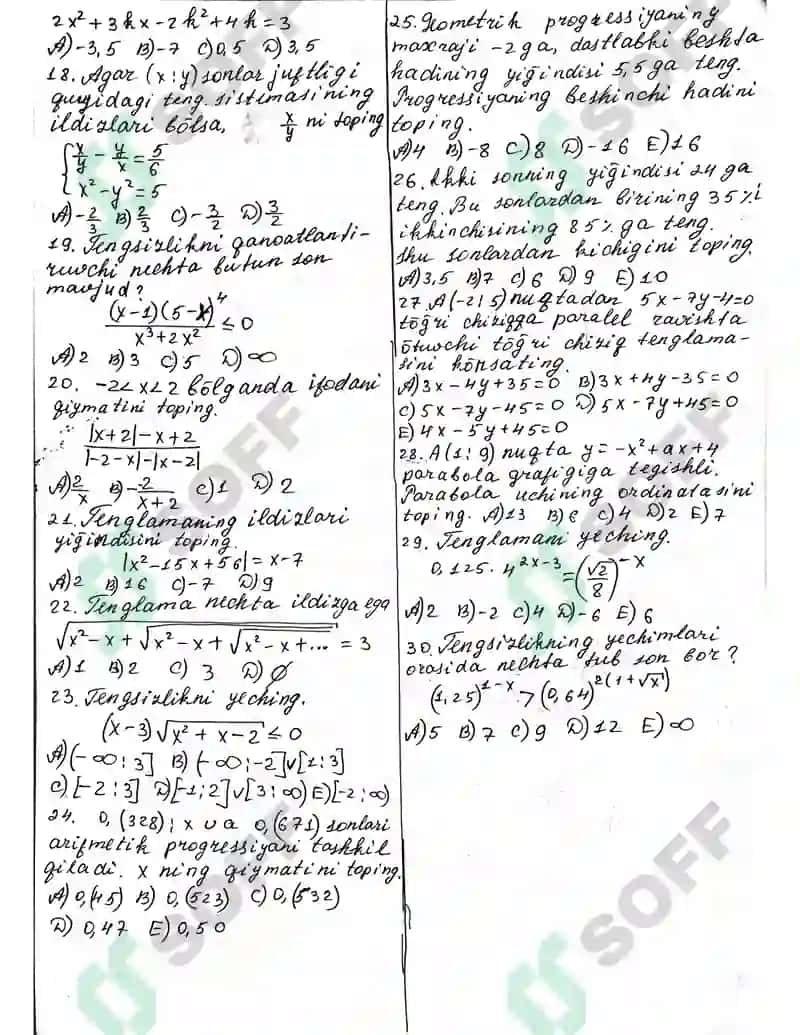 2x² + 3kx - 2k² + 4k = 3
A) -3,5 B) -7 C) 0,5 D) 3,5
18. Agar (x ; y) sonlar juftligi
quyidagi teng. sistemasining
ildizlari bo'lsa, x/y ni toping
{ x/y - y/x = 5/6
x² - y² = 5
A) -2/3 B) 2/3 C) -3/2 D) 3/2
19. Tengsizlikni qanoatlanti-
ruvchi nechta butun son
mavjud?
(x-1)(5-x)⁴ / x³+2x² ≤ 0
A) 2 B) 3 C) 5 D) ∞
20. -2<x<2 bo'lganda ifodani
qiymatini toping.
|x+2| - x + 2 / |-2-x| - |x-2|
A) 2/x B) -2/x+2 C) 1 D) 2
21. Tenglamaning ildizlari
yig'indisini toping.
|x² - 15x + 56| = x - 7
A) 2 B) 16 C) -7 D) 9
22. Tenglama nechta ildizga ega
√(x² - x + √(x² - x + √(x² - x + ...))) = 3
A) 1 B) 2 C) 3 D) ∅
23. Tengsizlikni yeching.
(x-3)√(x² + x - 2) ≤ 0
A) (-∞ ; 3] B) (-∞ ; -2]∪[1 ; 3]
C) [-2 ; 3] D) [-1 ; 2]∪[3 ; ∞) E) [-2 ; ∞)
24. 0,(328) ; x va 0,(671) sonlari
arifmetik progressiyani tashkil
qiladi. x ning qiymatini toping.
A) 0,(45) B) 0,(523) C) 0,(532)
D) 0,47 E) 0,50
25. Geometrik progressiyaning
maxraji -2 ga, dastlabki beshta
hadining yig'indisi 5,5 ga teng.
Progressiyaning beshinchi hadini
toping.
A) 4 B) -8 C) 8 D) -16 E) 16
26. Ikki sonning yig'indisi 24 ga
teng. Bu sonlardan birining 35%i
ikkinchisining 85% ga teng.
Shu sonlardan kichigini toping.
A) 3,5 B) 7 C) 6 D) 9 E) 10
27. A(-2 ; 5) nuqtadan 5x - 7y - 4 = 0
to'g'ri chiziqqa paralel ravishta
o'tuvchi to'g'ri chiziq tenglama-
sini ko'rsating.
A) 3x - 4y + 35 = 0 B) 3x + 4y - 35 = 0
C) 5x - 7y - 45 = 0 D) 5x - 7y + 45 = 0
E) 4x - 5y + 45 = 0
28. A(1 ; 9) nuqta y = -x² + ax + 4
parabola grafigiga tegishli.
Parabola uchining ordinatasini
toping. A) 13 B) 6 C) 4 D) 2 E) 7
29. Tenglamani yeching.
0,125 · 4^(2x-3) = (√2/8)^(-x)
A) 2 B) -2 C) 4 D) -6 E) 6
30. Tengsizlikning yechimlari
orasida nechta tub son bor?
(1,25)^(1-x) > (0,64)^(2(1+√x))
A) 5 B) 7 C) 9 D) 12 E) ∞
SOFF
SOFF
SOFF
SOFF